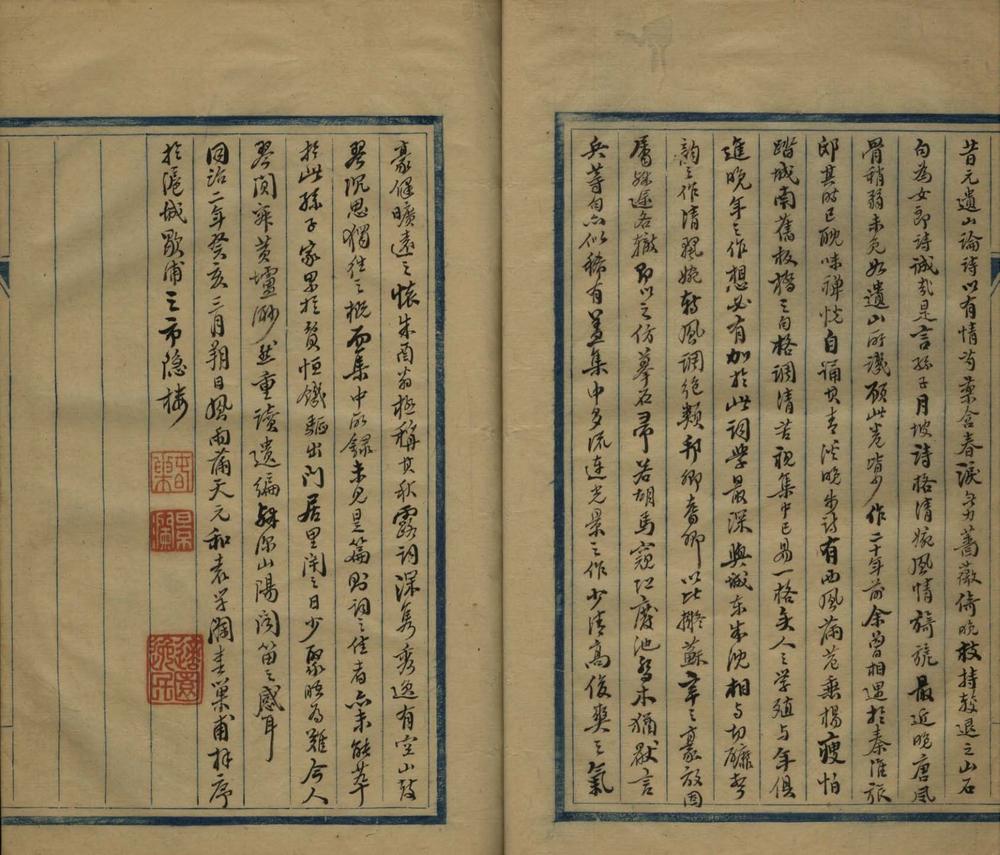 昔元遺山論詩以有情芍藥含春淚無力薔薇倚晚枝持較退之山石
句為女郎詩誠哉是言孫子月坡詩格清婉風情旖旎最近晚唐風
骨稍弱未免如遺山所譏顧此卷皆少作二十年前余曾相遇於秦淮旅
邸其時已耽味禪悅自誦其青溪晚步詩有西風滿苑垂楊瘦怕
踏城南舊板橋之句格調清苦視集中已易一格矣人之學殖与年俱
進晚年之作想必有加於此詞學最深與城東朱沈相与切劘哲
韵之作清麗婉轉風調絕類邦卿耆卿以比擬蘇辛之豪放固
屬殊途各轍即以之仿摹石帚若胡馬窺江廢池喬木猶厭言
兵等句亦似稀有蓋集中多流連光景之作少清高俊爽之氣
豪健曠遠之懷朱酉翁極稱其秋露詞深雋秀逸有空山鼓
琴沉思獨往之概而集中所錄未見是篇則詞之佳者亦未能萃
於此孫子家累於貧恒饑驅出門居里閈之日少聚晤為難今人
琴闃寂黃壚渺然重讀遺編殊深山陽聞笛之感耳
同治二年癸亥三月朔日風雨滿天元和袁學瀾春巢甫拜序
於滬城歇浦之市隱樓
春巢
景瀾